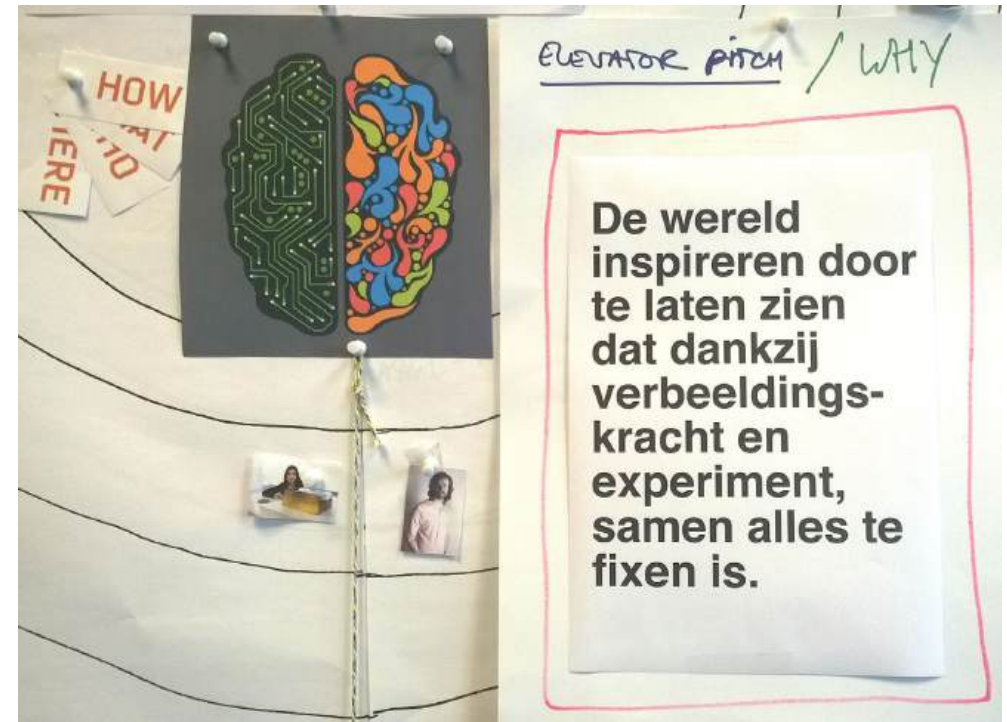 HOW
AT
HO
ERE
ELEVATOR PITCH / WHY
De wereld
inspireren door
te laten zien
dat dankzij
verbeeldings-
kracht en
experiment,
samen alles te
fixen is.